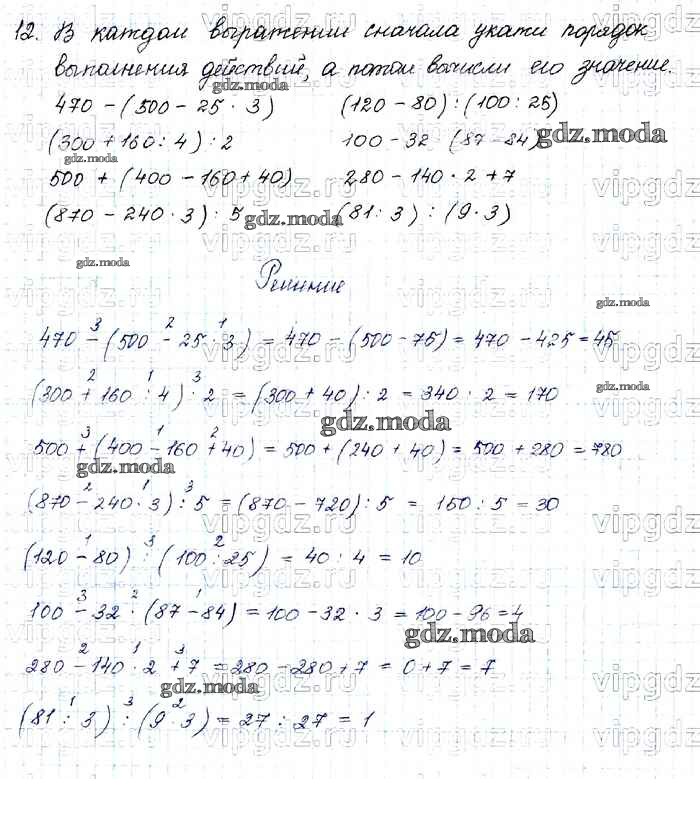 12. В каждом выражении сначала укажи порядок
выполнения действий, а потом вычисли его значение.
470 - (500 - 25 · 3) (120 - 80) : (100 : 25)
(300 + 160 : 4) : 2 100 - 32 · (87 - 84) gdz.moda
gdz.moda
500 + (400 - 160 + 40) 280 - 140 · 2 + 7
(870 - 240 · 3) : 5 gdz.moda (81 : 3) : (9 · 3)
gdz.moda
Решение
3 2 1
470 - (500 - 25 · 3) = 470 - (500 - 75) = 470 - 425 = 45
2 1 3
(300 + 160 : 4) : 2 = (300 + 40) : 2 = 340 : 2 = 170
gdz.moda
gdz.moda
3 1 2
500 + (400 - 160 + 40) = 500 + (240 + 40) = 500 + 280 = 780
gdz.moda
2 1 3
(870 - 240 · 3) : 5 = (870 - 720) : 5 = 150 : 5 = 30
1 3 2
(120 - 80) : (100 : 25) = 40 : 4 = 10
3 2 1
100 - 32 · (87 - 84) = 100 - 32 · 3 = 100 - 96 = 4
gdz.moda
2 1 3
280 - 140 · 2 + 7 = 280 - 280 + 7 = 0 + 7 = 7
gdz.moda
1 3 2
(81 : 3) : (9 · 3) = 27 : 27 = 1
vipgdz.ru